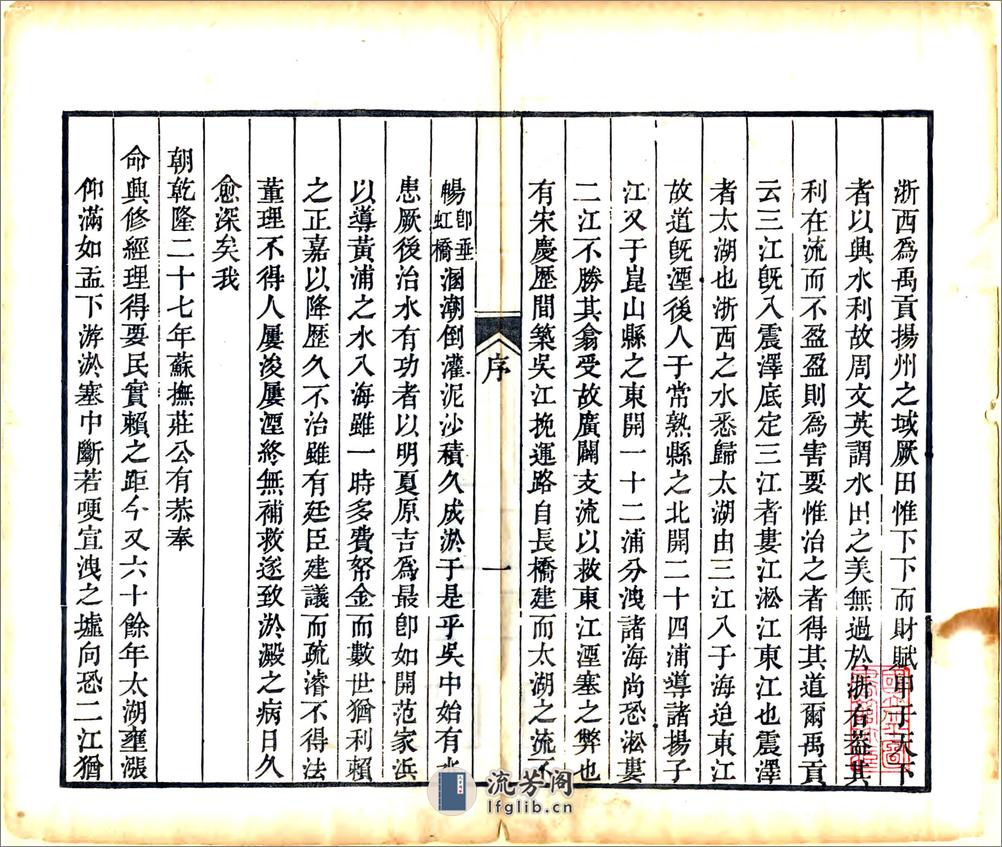 浙西爲禹貢揚州之域厥田惟下下而財賦甲于天下
者以興水利故周文英謂水田之美無過於浙右葢其
利在流而不盈盈則爲害要惟治之者得其道爾禹貢
云三江旣入震澤底定三江者婁江淞江東江也震澤
者太湖也浙西之水悉歸太湖由三江入于海迨東江
故道旣湮後人于常熟縣之北開二十四浦導諸揚子
江又于崑山縣之東開一十二浦分洩諸海尚恐淞婁
二江不勝其翕受故廣闢支流以救東江湮塞之弊也
有宋慶歷間築吳江挽運路自長橋建而太湖之流不
序
一
暢卽垂虹橋溷潮倒灌泥沙積久成淤于是乎吳中始有水
患厥後治水有功者以明夏原吉爲最卽如開范家浜
以導黃浦之水入海雖一時多費帑金而數世猶利賴
之正嘉以降歷久不治雖有廷臣建議而疏濬不得法
董理不得人屢浚屢湮終無補救遂致淤澱之病日久
愈深矣我
朝乾隆二十七年蘇撫莊公有恭奉
命興修經理得要民實賴之距今又六十餘年太湖壅漲
仰滿如盂下游淤塞中斷若哽宣洩之墟向恐二江猶
流芳阁
lfglib.cn